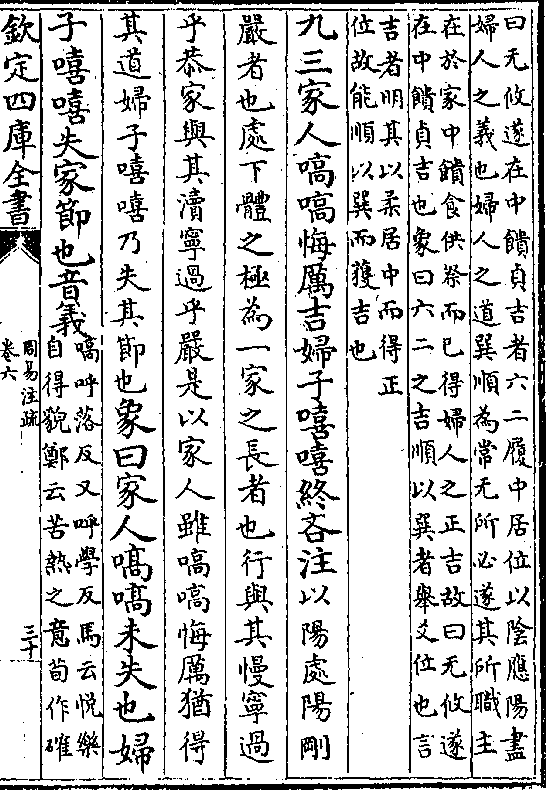 曰无攸遂在中饋貞吉者六二履中居位以陰應陽盡
婦人之義也婦人之道巽順為常无所必遂其所職主
在於家中饋食供祭而已得婦人之正吉故曰无攸遂
在中饋貞吉也象曰六二之吉順以巽者舉爻位也言
吉者明其以柔居中而得正
位故能順以巽而獲吉也
九三家人嗃嗃悔厲吉婦子嘻嘻終吝注以陽處陽剛
嚴者也處下體之極為一家之長者也行與其慢寧過
乎恭家與其瀆寧過乎嚴是以家人雖嗃嗃悔厲猶得
其道婦子嘻嘻乃失其節也象曰家人嗃嗃未失也婦
子嘻嘻失家節也音義
嗃呼落反又呼學反馬云悅樂
自得貌鄭云苦熱之意荀作確
欽定四庫全書
周易注疏
卷六
三十